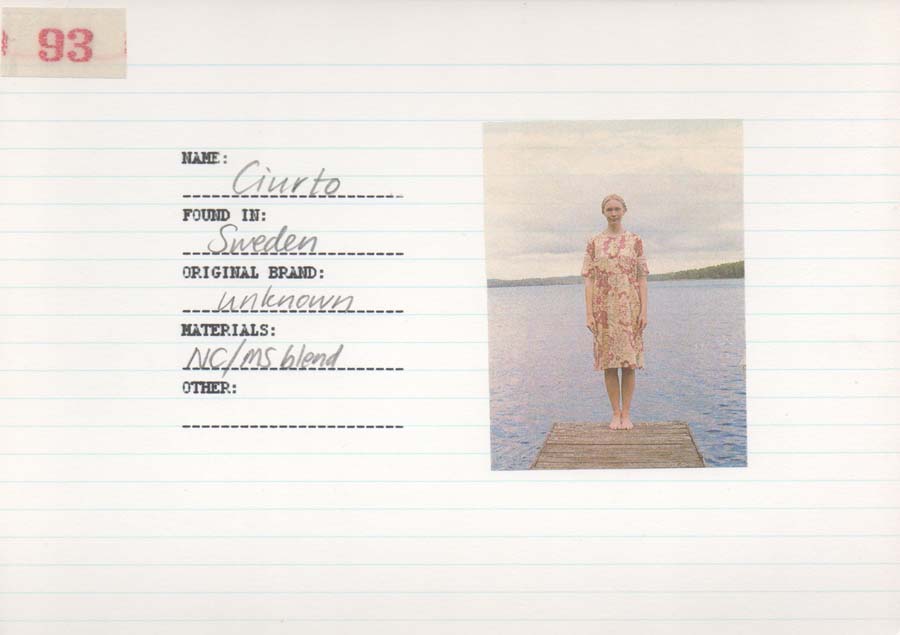 93
NAME:
Ciurto
FOUND IN:
Sweden
ORIGINAL BRAND:
unknown
MATERIALS:
NC/MS blend
OTHER: